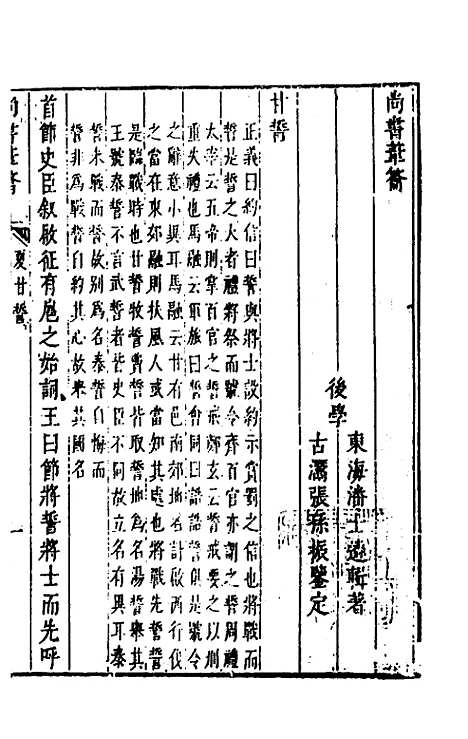 尚書葦籥
後學
東海潘士遴輯著
古灊張孫振鑒定
甘誓
正義曰約信曰誓與將士設約示賞罰之信也將戰而
誓是誓之大者禮將祭而號令齊百官亦謂之誓周禮
太宰云五帝則掌百官之誓戒鄭玄云誓戒要之以刑
重失禮也馬融云軍旅曰誓會同曰誥誥誓俱是號令
之辭意小異耳馬融云甘有邑南郊地名計啟西行伐
之當在東郊融則扶風人或當知其處也將戰先誓誓
是臨戰時也甘誓牧誓費誓皆取誓地為名湯誓舉其
王號泰誓不言武誓者皆史臣不同故立名有異耳泰
誓未戰而誓故別為名秦誓自悔而
誓非為戰誓自約其心故舉其國名
首節史臣敘啟征有扈之始詞王曰節將誓將士而先呼
尚書葦籥
夏甘誓
一